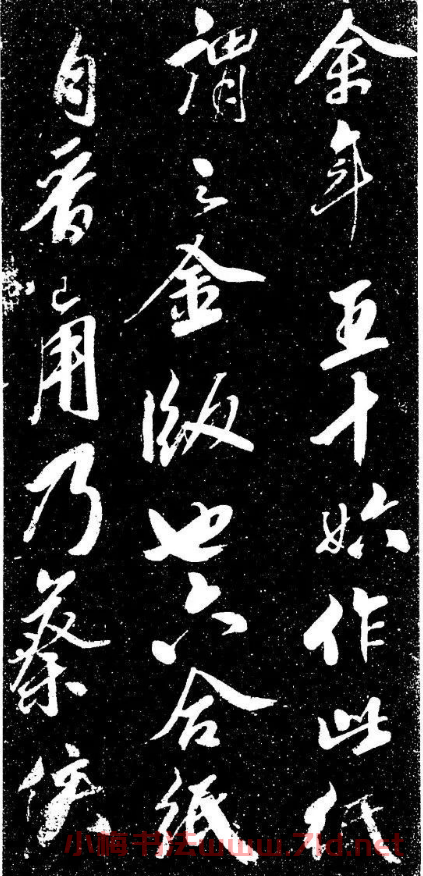 余年五十始作此紙
謂之金版也六合紙
自晉已用乃蔡侯
小梅书法www.7ld.net